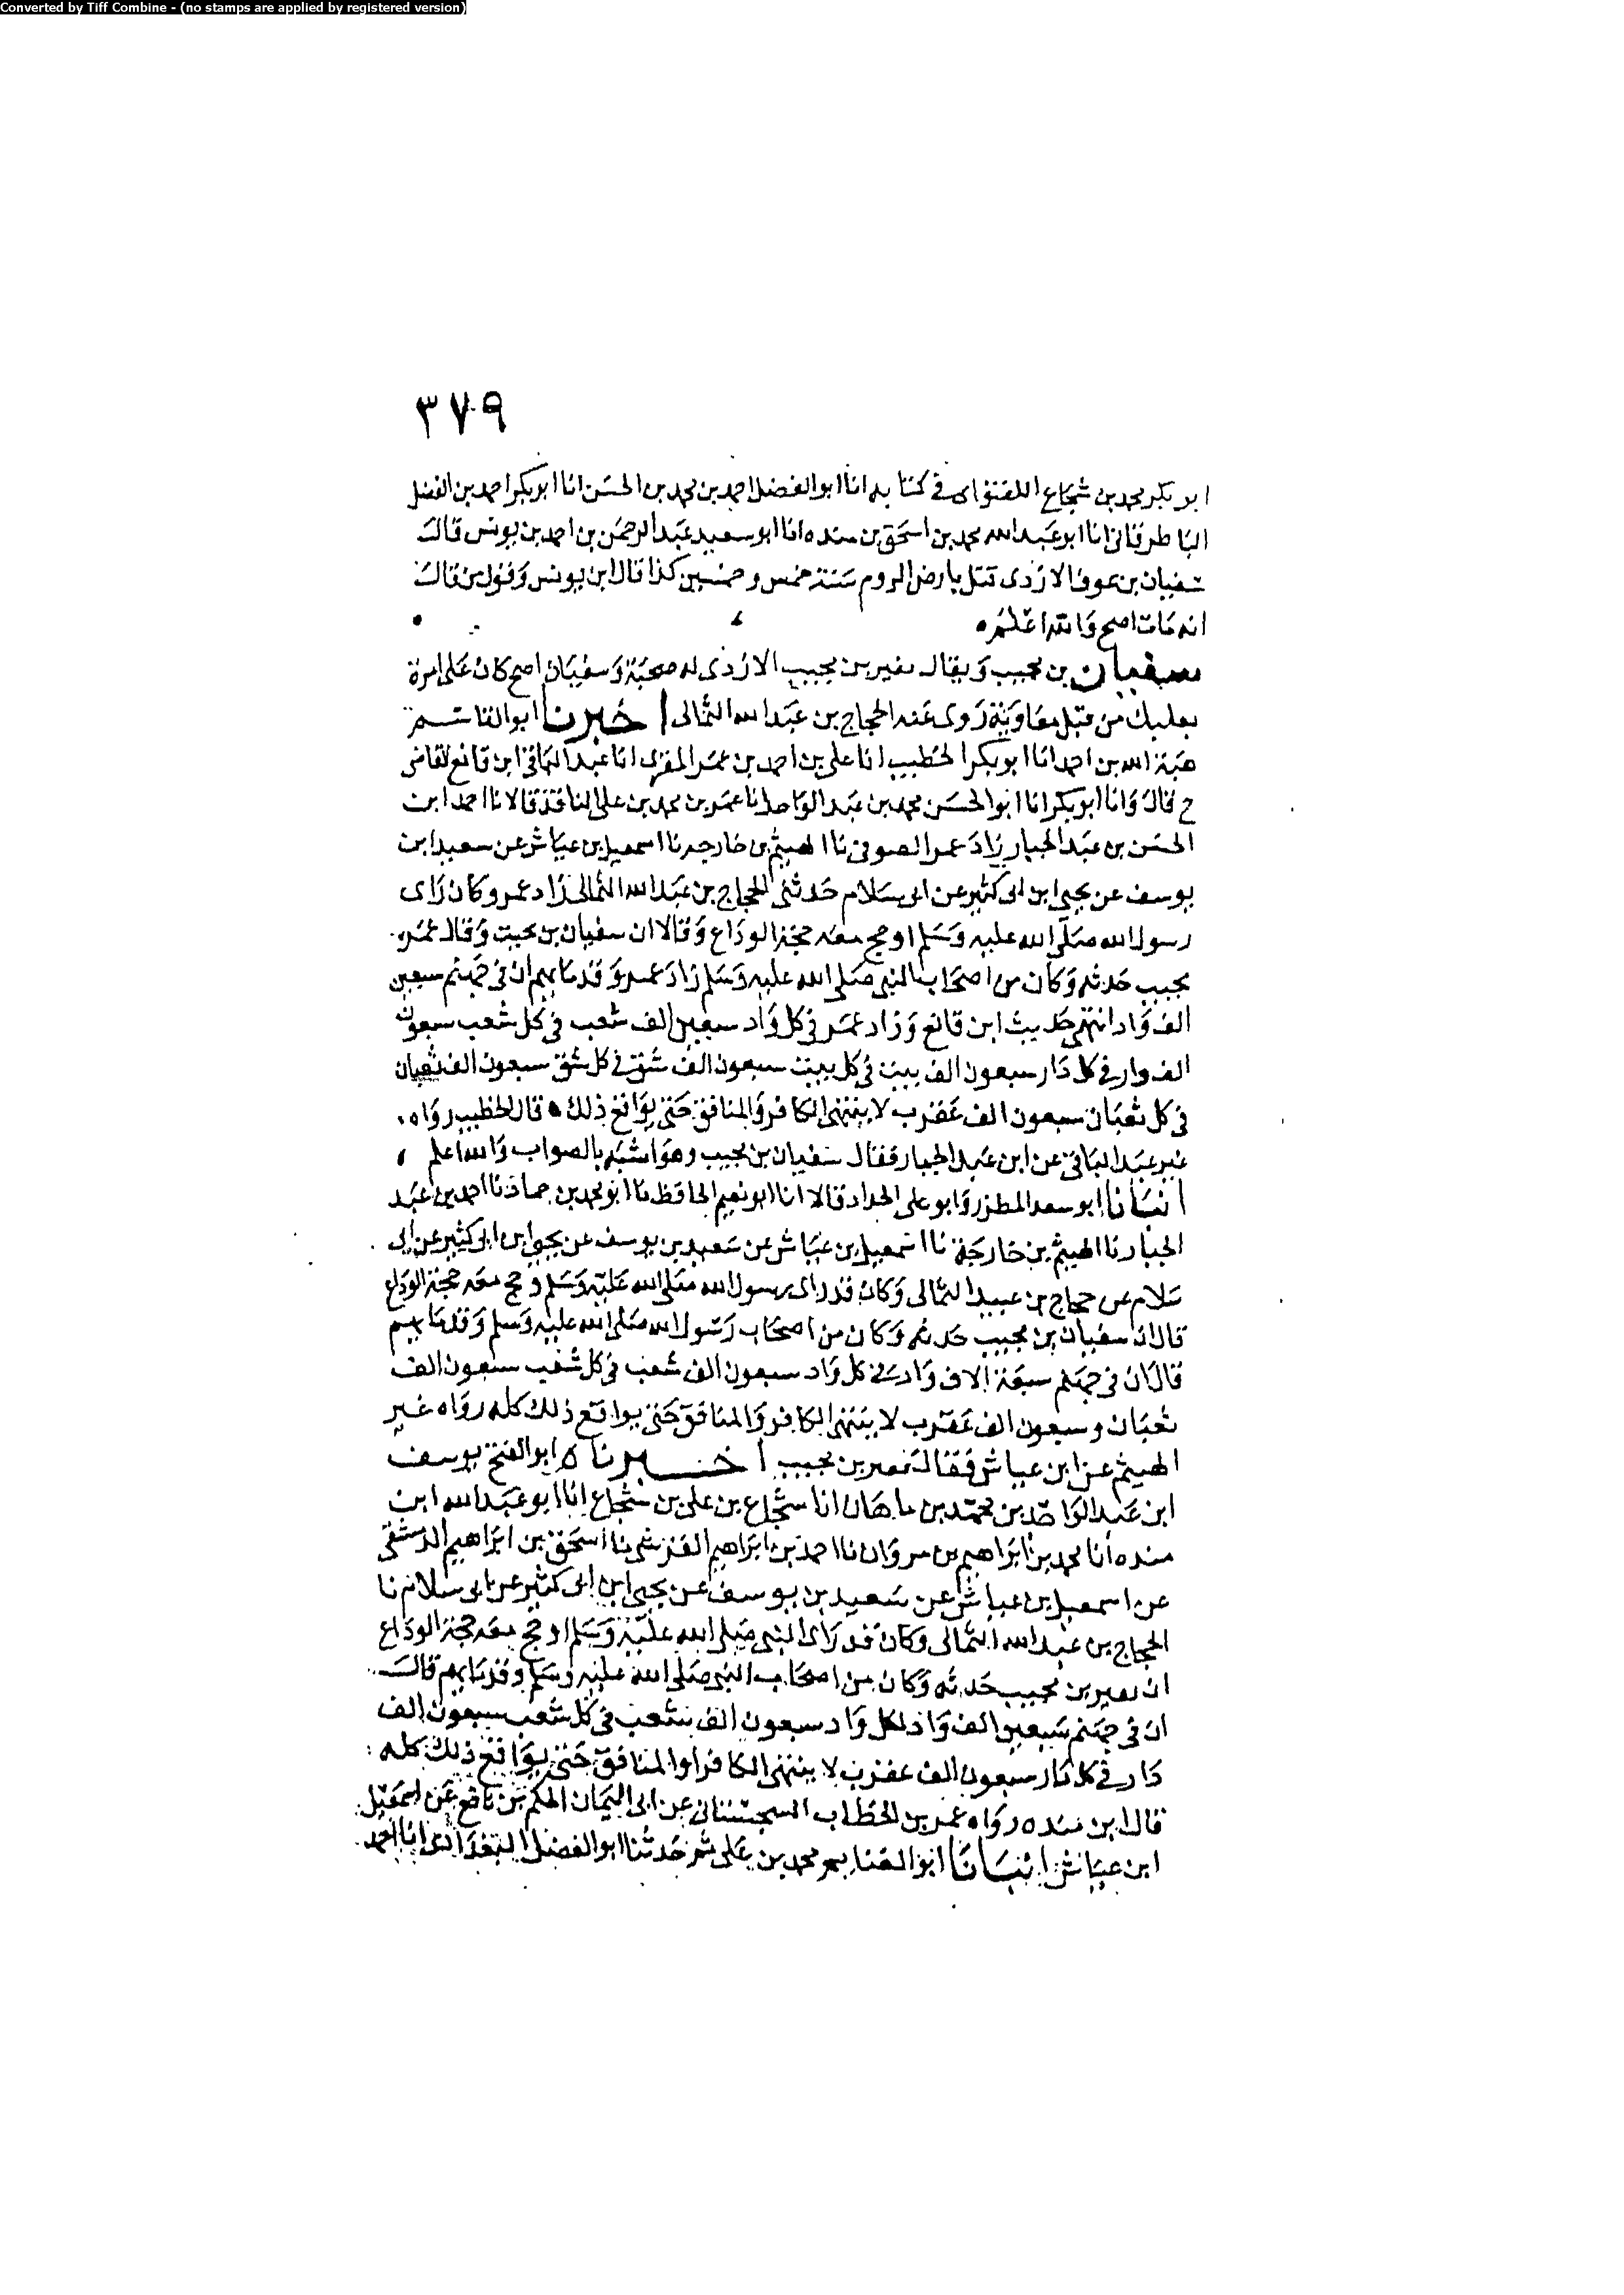 Converted by Tiff Combine - (no stamps are applied by registered version)
٣٧٩
ابو بكر محمد بن شجاع اللفتواى فى كتابه انا ابو الفضل احمد بن محمد بن الحسن انا ابو بكر احمد بن الفضل
الباطرقانى انا ابو عبد الله محمد بن اسحق بن منده انا ابو سعيد عبد الرحمن بن احمد بن يونس قال
سفيان بن عوف الازدى قتل بارض الروم سنة خمس وخمسين كذا قال ابن يونس وقول من قال
انه مات اصح والله اعلم
سفيان بن مجيب ويقال نفير بن مجيب الازدى له صحبة وسفيان اصح كان على امرة
بعلبك من قبل معاوية روى عنه الحجاج بن عبد الله الثمالى اخبرنا ابو القاسم
هبة الله بن احمد انا ابو بكر الخطيب انا على بن احمد بن عمر المقرى انا عبد الباقى ابن قانع القاضى
ح قال وانا ابو بكر انا ابو الحسن محمد بن عبد الواحد انا عمر بن محمد بن على الناقد قالا نا احمد ابن
الحسن بن عبد الجبار زاد عمر الصوفى نا الهيثم بن خارجه نا اسمعيل بن عياش عن سعيد ابن
يوسف عن يحيى ابن ابى كثير عن ابى سلام حدثنى الحجاج بن عبد الله الثمالى زاد عمر وكان راى
رسول الله صلى الله عليه وسلم او حج معه حجة الوداع وقالا ان سفيان بن مجيب وقال عمر بن
مجيب حدثه وكان من اصحاب النبى صلى الله عليه وسلم زاد عمر وقدمايهم ان فى جهنم سبعين
الف واد انتهى حديث ابن قانع وزاد عمر فى كل واد سبعين الف شعب فى كل شعب سبعون
الف دار فى كل دار سبعون الف بيت فى كل بيت سبعون الف شق فى كل شق سبعون الف ثعبان
فى كل ثعبان سبعون الف عقرب لا ينتهى الكافر والمنافق حتى يواقع ذلك قال الخطيب رواه
غير عبد الباقى عن ابن عبد الجبار فقال سفيان بن مجيب وهو اشبه بالصواب والله اعلم
انبانا ابو سعد المطرز وابو على الحداد قالا انا ابو نعيم الحافظ نا ابو محمد بن حماد نا احمد بن عبد
الجبار نا الهيثم بن خارجة نا اسمعيل بن عياش عن سعيد بن يوسف عن يحيى ابن ابى كثير عن ابى
سلام عن حجاج بن عبيد الثمالى وكان قد راى رسول الله صلى الله عليه وسلم وحج معه حجة الوداع
قال ان سفيان بن مجيب حدثه وكان من اصحاب رسول الله صلى الله عليه وسلم وقدمايهم
قال ان فى جهنم سبعة الاف واد فى كل واد سبعون الف شعب فى كل شعب سبعون الف
ثعبان وسبعون الف عقرب لا ينتهى الكافر والمنافق حتى يواقع ذلك كله رواه غير
الهيثم عن ابن عياش فقال نفير بن مجيب اخبرناه ابو الفتح يوسف
ابن عبد الواحد بن محمد بن ماهان انا شجاع بن على بن شجاع انا ابو عبد الله ابن
منده انا محمد بن ابراهيم بن مروان نا احمد بن ابراهيم القرشى نا اسحق بن ابراهيم الدمشقى
عن اسمعيل بن عياش عن سعيد بن يوسف عن يحيى ابن ابى كثير عن ابى سلام نا
الحجاج بن عبد الله الثمالى وكان قد راى النبى صلى الله عليه وسلم او حج معه حجة الوداع
ان نفير بن مجيب حدثه وكان من اصحاب النبى صلى الله عليه وسلم وقدمايهم قال
ان فى جهنم سبعين الف واد لكل واد سبعون الف شعب فى كل شعب سبعون الف
دار فى كل دار سبعون الف عقرب لا ينتهى الكافر او المنافق حتى يواقع ذلك كله
قال ابن منده رواه عمر بن الخطاب السجستانى عن ابى اليمان الحكم بن نافع عن اسمعيل
ابن عياش انبانا ابو الغنايم محمد بن على ثم حدثنا ابو الفضل البغدادى انا احمد